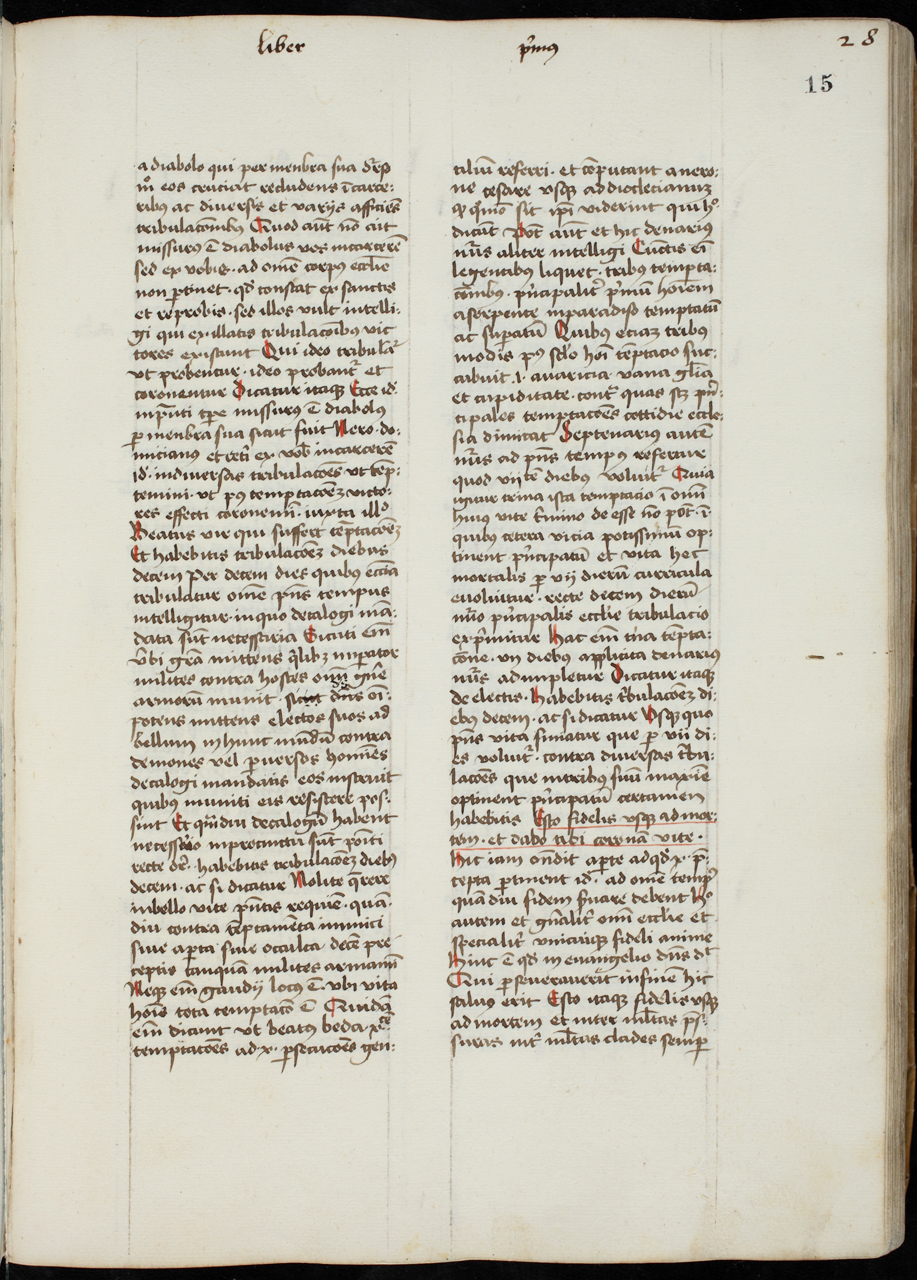 liber p̄mus 28
15
a diabolo qui per menbra sua
eos cruciat recludens ī carce:
ribus ac diversis et varijs afficiēs
tribulacōnibus Quod aūt nō ait
missurus ē diabolus vos in carcerē
sed ex vobis · ad omē corpus eccl̄ie
non pertinet · qd̄ constat ex sanctis
et reprobis · sed illos vult intelli
gi qui ex illatis tribulacōibus vic
tores existunt Qui ideo tribulāt̄
vt probentur · ideo probant̄ et
coronentur Dicatur itaque Ecce id̄
inp̄nti tp̄e missurus ē diabolus
per menbra sua sicut fuit Nero · do:
micianus et cet̄i ex vob̄ in carcerē
id̄ · in diversas tribulacōes vt tēp:
temini · vt pꝰ temptacōeȝ victo:
res effecti coronemī · iuxta illd̄
Beatus vir qui suffert tēptacōeȝ
Et habebitis tribulacōeȝ diebus
decem Per decem dies quibus eccl̄ia
tribulatur omē pn̄s tempus
intelligitur · in quo decalogi mā:
data sūt necessaria Sicuti em̄
v̄bi grā mittens qͥlibȝ imperator
milites contra hostes omī gn̄e
armorū munit · dn̄s oī:
potens mittens electos suos ad
bellum in hunc mūdū contra
demones vel perversos homīes
decalogi mandatis eos instruit
quibus muniti eis resistere pos:
sint Et qͣmdiu decalogū habent
necessͣio in procinctu sūt poīti
recte dr̄ · habebitis tribulacōeȝ diebꝰ
decem · ac si dicatur Nolite qͣrere
in bello vite pn̄tis requiē · quā
diu contra temptamēta inimici
sive aperta sive occulta · decē pre
ceptis tanquam milites armamī
Neque em̄ gaudij locus ē · vbi vita
hoīs tota temptacō ē Quidā
em̄ dicunt vt beatus beda · x
temptacōes ad · x · persecucōes gen:
tiliū referri · et cōputant a nero:
ne cesare vsque ad dioclecianum
sit ip̄i viderint qui hͦ
dicūt Pōt aūt et hic denarius
nūs aliter intelligi Cunctis em̄
legentibus liquet · tribus tempta:
cōnibus · pͥncipalitͬ pͥmū hoīem
a serpente in paradiso temptatū
ac superatū Quibus eciaȝ tribus
modis pꝰ scd̄o hoī tēptacio suc:
cubuit · i · avaricia · vana glīa
et cupiditate · contͣ quas scȝ pͥn:
cipales temptacōes cottidie eccle:
sia dimicat Septenarius autē
nūs ad pn̄s tempus refertur
quod vij tē diebus volvitͬ Quia
igitur trina ista temptacio ī omī
huius vite tͥmino de esse nō potͭ · ī
quibus cetera vicia potissimū op:
tinent pͥncipatū et vita hec
mortalis per vij dierū curricula
evolvitur · recte decem dierū
nūo pͥncipalis eccl̄ie tribulacio
expͥmitur Hac em̄ tͥna tēpta:
cōne · vij diebus applicita denarius
nūs adimpletur Dicatur itaque
de electis · habebitis tͥbulacōeȝ di:
ebus decem · ac si dicatur Vsque quo
pn̄s vita finiatur que per vij di:
es volvitͬ · contra diversas tͥbu:
lacōes que in tribus suū maxīe
optinent pͥncipatū certamen
habebitis Esto fidelis vsque ad mor:
tem · et dabo tibi coronā vite ·
Hic iam ondit aperte ad qd̄ · x · p̄:
cepta pertinent id̄ · ad omē tempus
quā diu fidem servare debent hͦ
autem et gn̄alitͬ omī eccl̄ie et
specialitͬ vnicuique fideli anime
Hinc ē qd̄ in evangelio dn̄s dt̄
Qui perseveraverit in finem hic
salvus erit Esto itaque fidelis vsque
ad mortem et inter mltͣas p̄s:
suras intͬ mltͣas clades semper